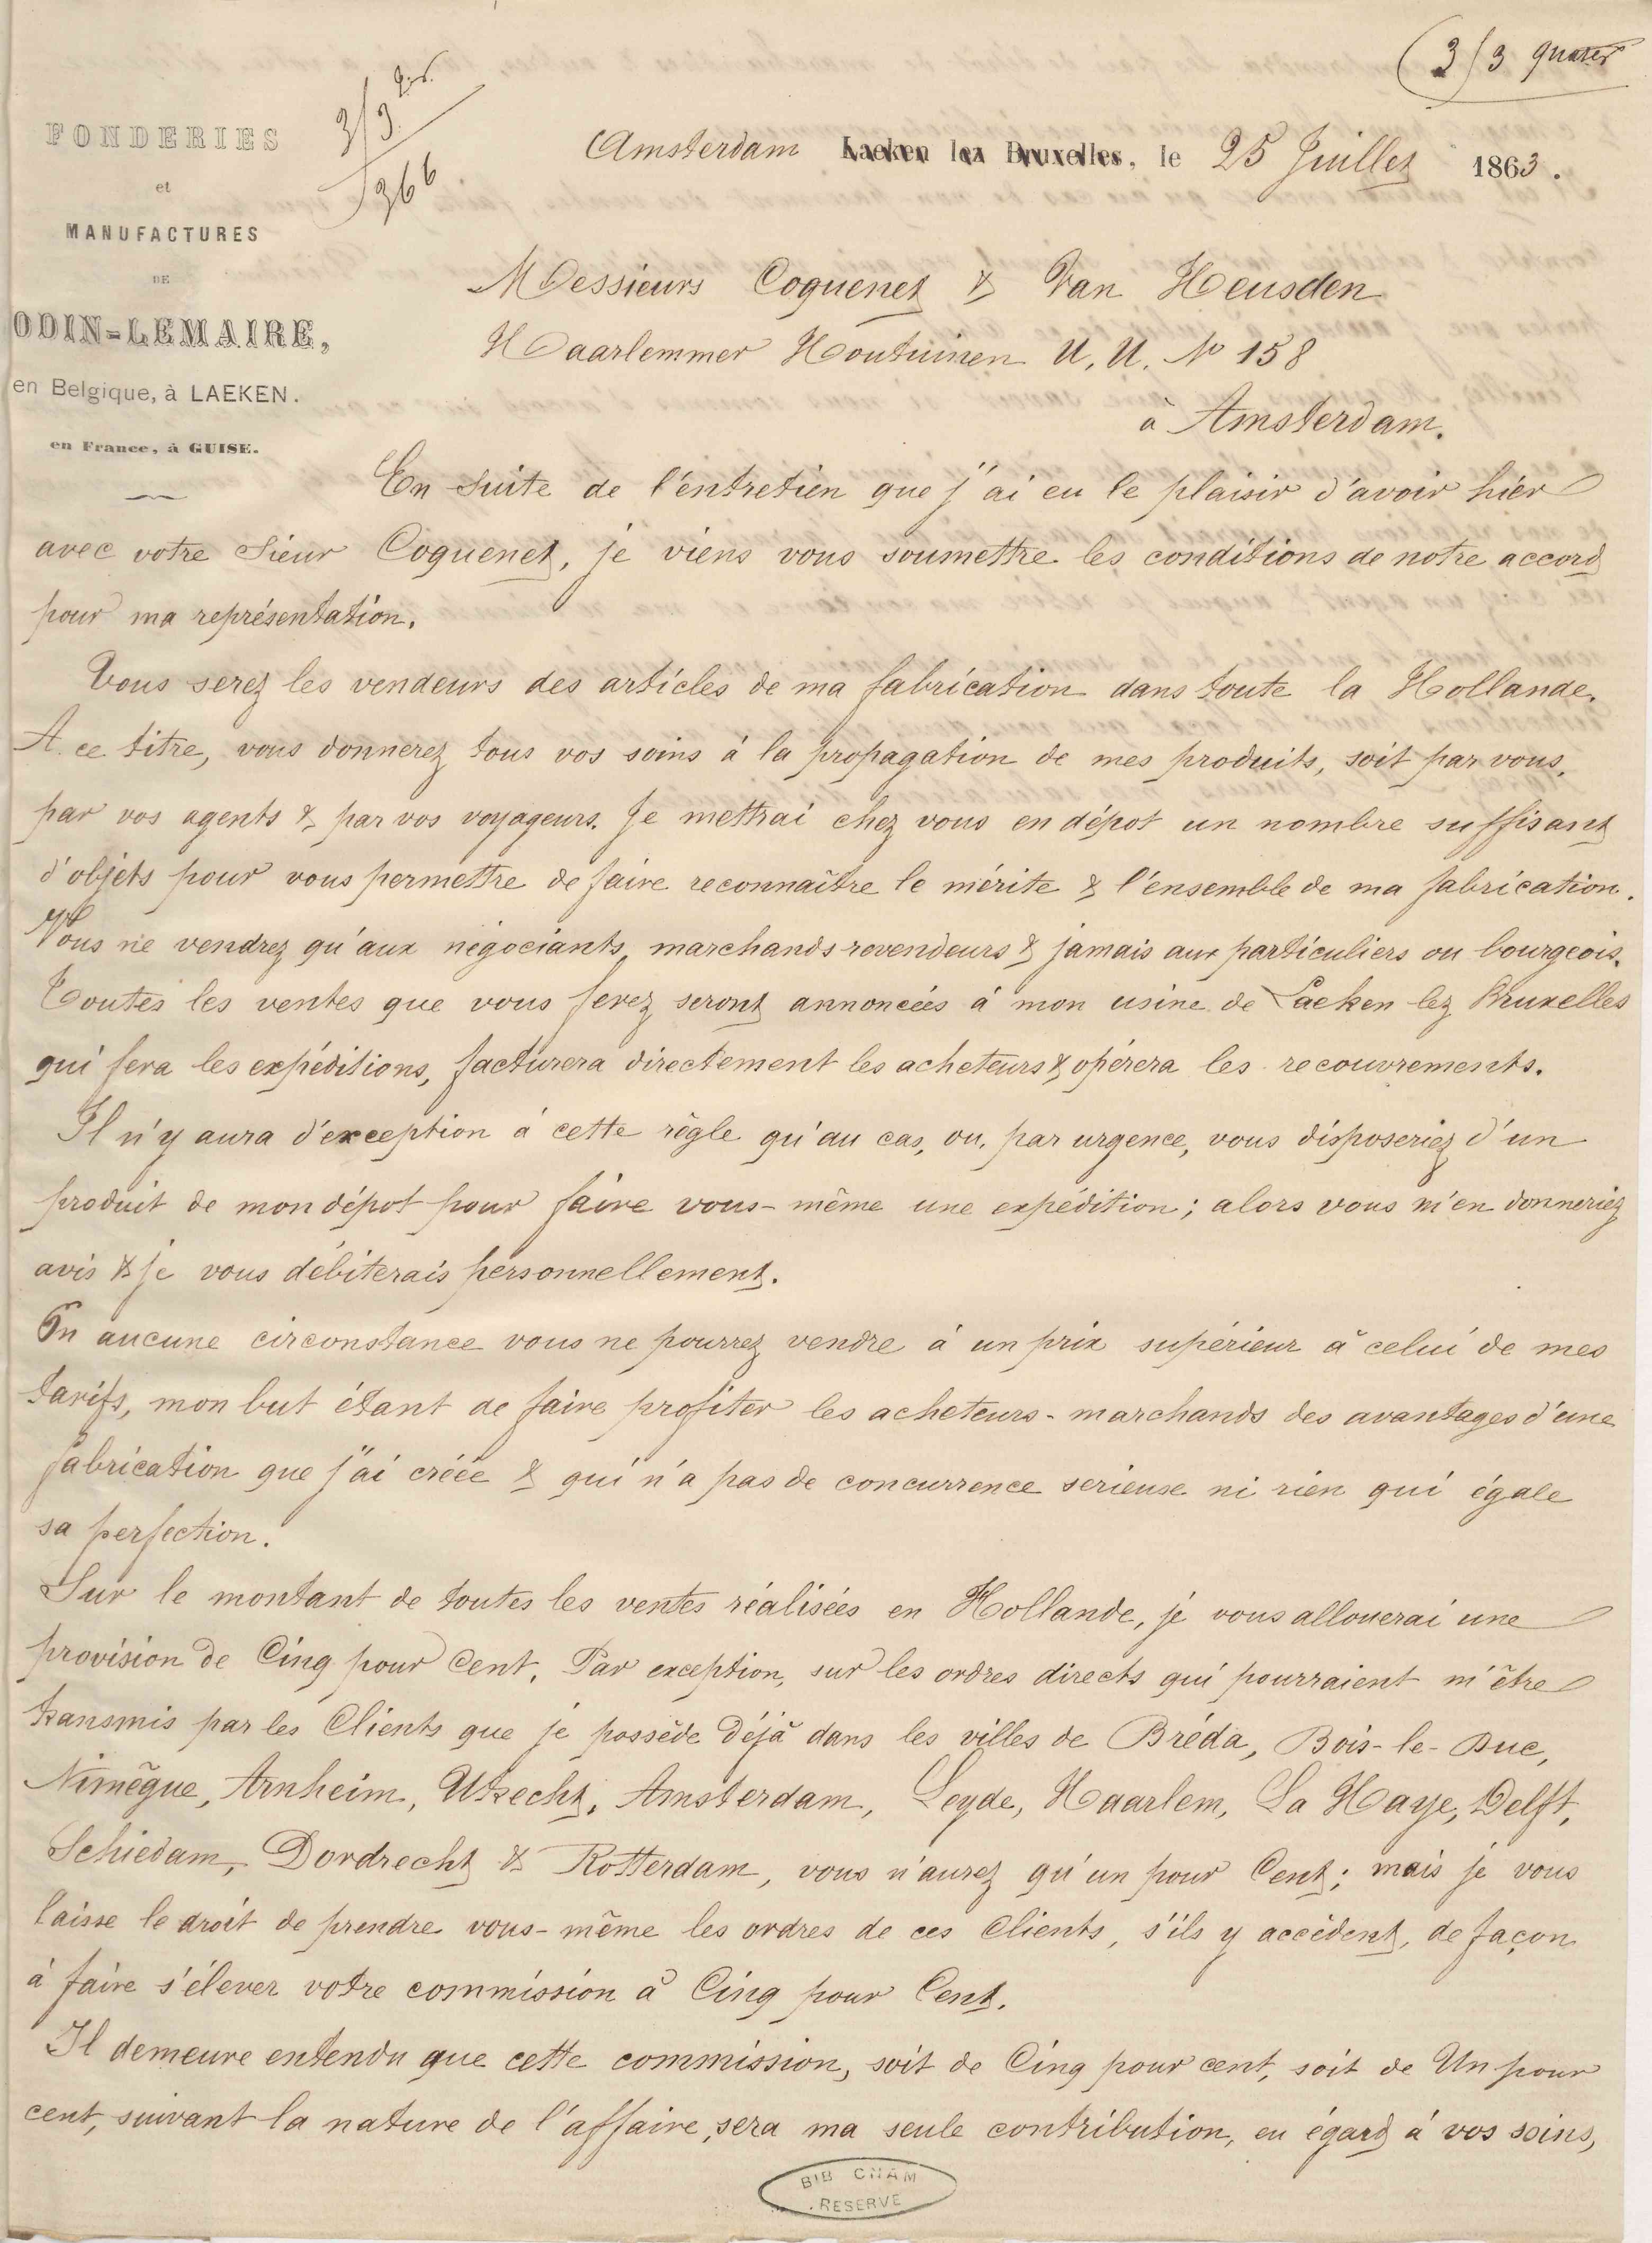 (3/3 quater
3/3 q.r.
366
FONDERIES
et
MANUFACTURES
DE
ODIN-LEMAIRE,
en Belgique, à LAEKEN.
en France, à GUISE.
Amsterdam Laeken lez Bruxelles, le 25 Juillet 1863.
Messieurs Coquenet & Van Heusden
Haarlemmer Houtuinen U, U. No 158
à Amsterdam.
En suite de l'entretien que j'ai eu le plaisir d'avoir hier
avec votre Sieur Coquenet, je viens vous soumettre les conditions de notre accord
pour ma représentation.
Vous serez les vendeurs des articles de ma fabrication dans toute la Hollande.
A ce titre, vous donnerez tous vos soins à la propagation de mes produits, soit par vous,
par vos agents & par vos voyageurs. Je mettrai chez vous en dépot un nombre suffisant
d'objets pour vous permettre de faire reconnaître le mérite & l'ensemble de ma fabrication.
Vous ne vendrez qu'aux négociants, marchands revendeurs & jamais aux particuliers ou bourgeois.
Toutes les ventes que vous ferez seront annoncées à mon usine de Laeken lez Bruxelles
qui fera les expéditions, facturera directement les acheteurs & opérera les recouvrements.
Il n'y aura d'exception à cette règle qu'au cas, ou, par urgence, vous disposeriez d'un
produit de mon dépot pour faire vous-même une expédition; alors vous m'en donneriez
avis & je vous débiterais personnellement.
En aucune circonstance vous ne pourrez vendre à un prix supérieur à celui de mes
tarifs, mon but étant de faire profiter les acheteurs-marchands des avantages d'une
fabrication que j'ai créée & qui n'a pas de concurrence serieuse ni rien qui égale
sa perfection.
Sur le montant de toutes les ventes réalisées en Hollande, je vous allouerai une
provision de Cinq pour Cent. Par exception, sur les ordres directs qui pourraient m'être
transmis par les Clients que je possède déjà dans les villes de Bréda, Bois-le-Duc,
Nimègue, Arnheim, Utrecht, Amsterdam, Leyde, Haarlem, La Haye, Delft,
Schiedam, Dordrecht & Rotterdam, vous n'aurez qu'un pour Cent; mais je vous
laisse le droit de prendre vous-même les ordres de ces Clients, s'ils y accèdent, de façon
à faire s'élever votre commission à Cinq pour Cent.
Il demeure entendu que cette commission, soit de Cinq pour cent, soit de Un pour
cent, suivant la nature de l'affaire, sera ma seule contribution, eu égard à vos soins,
BIB CNAM
RESERVE